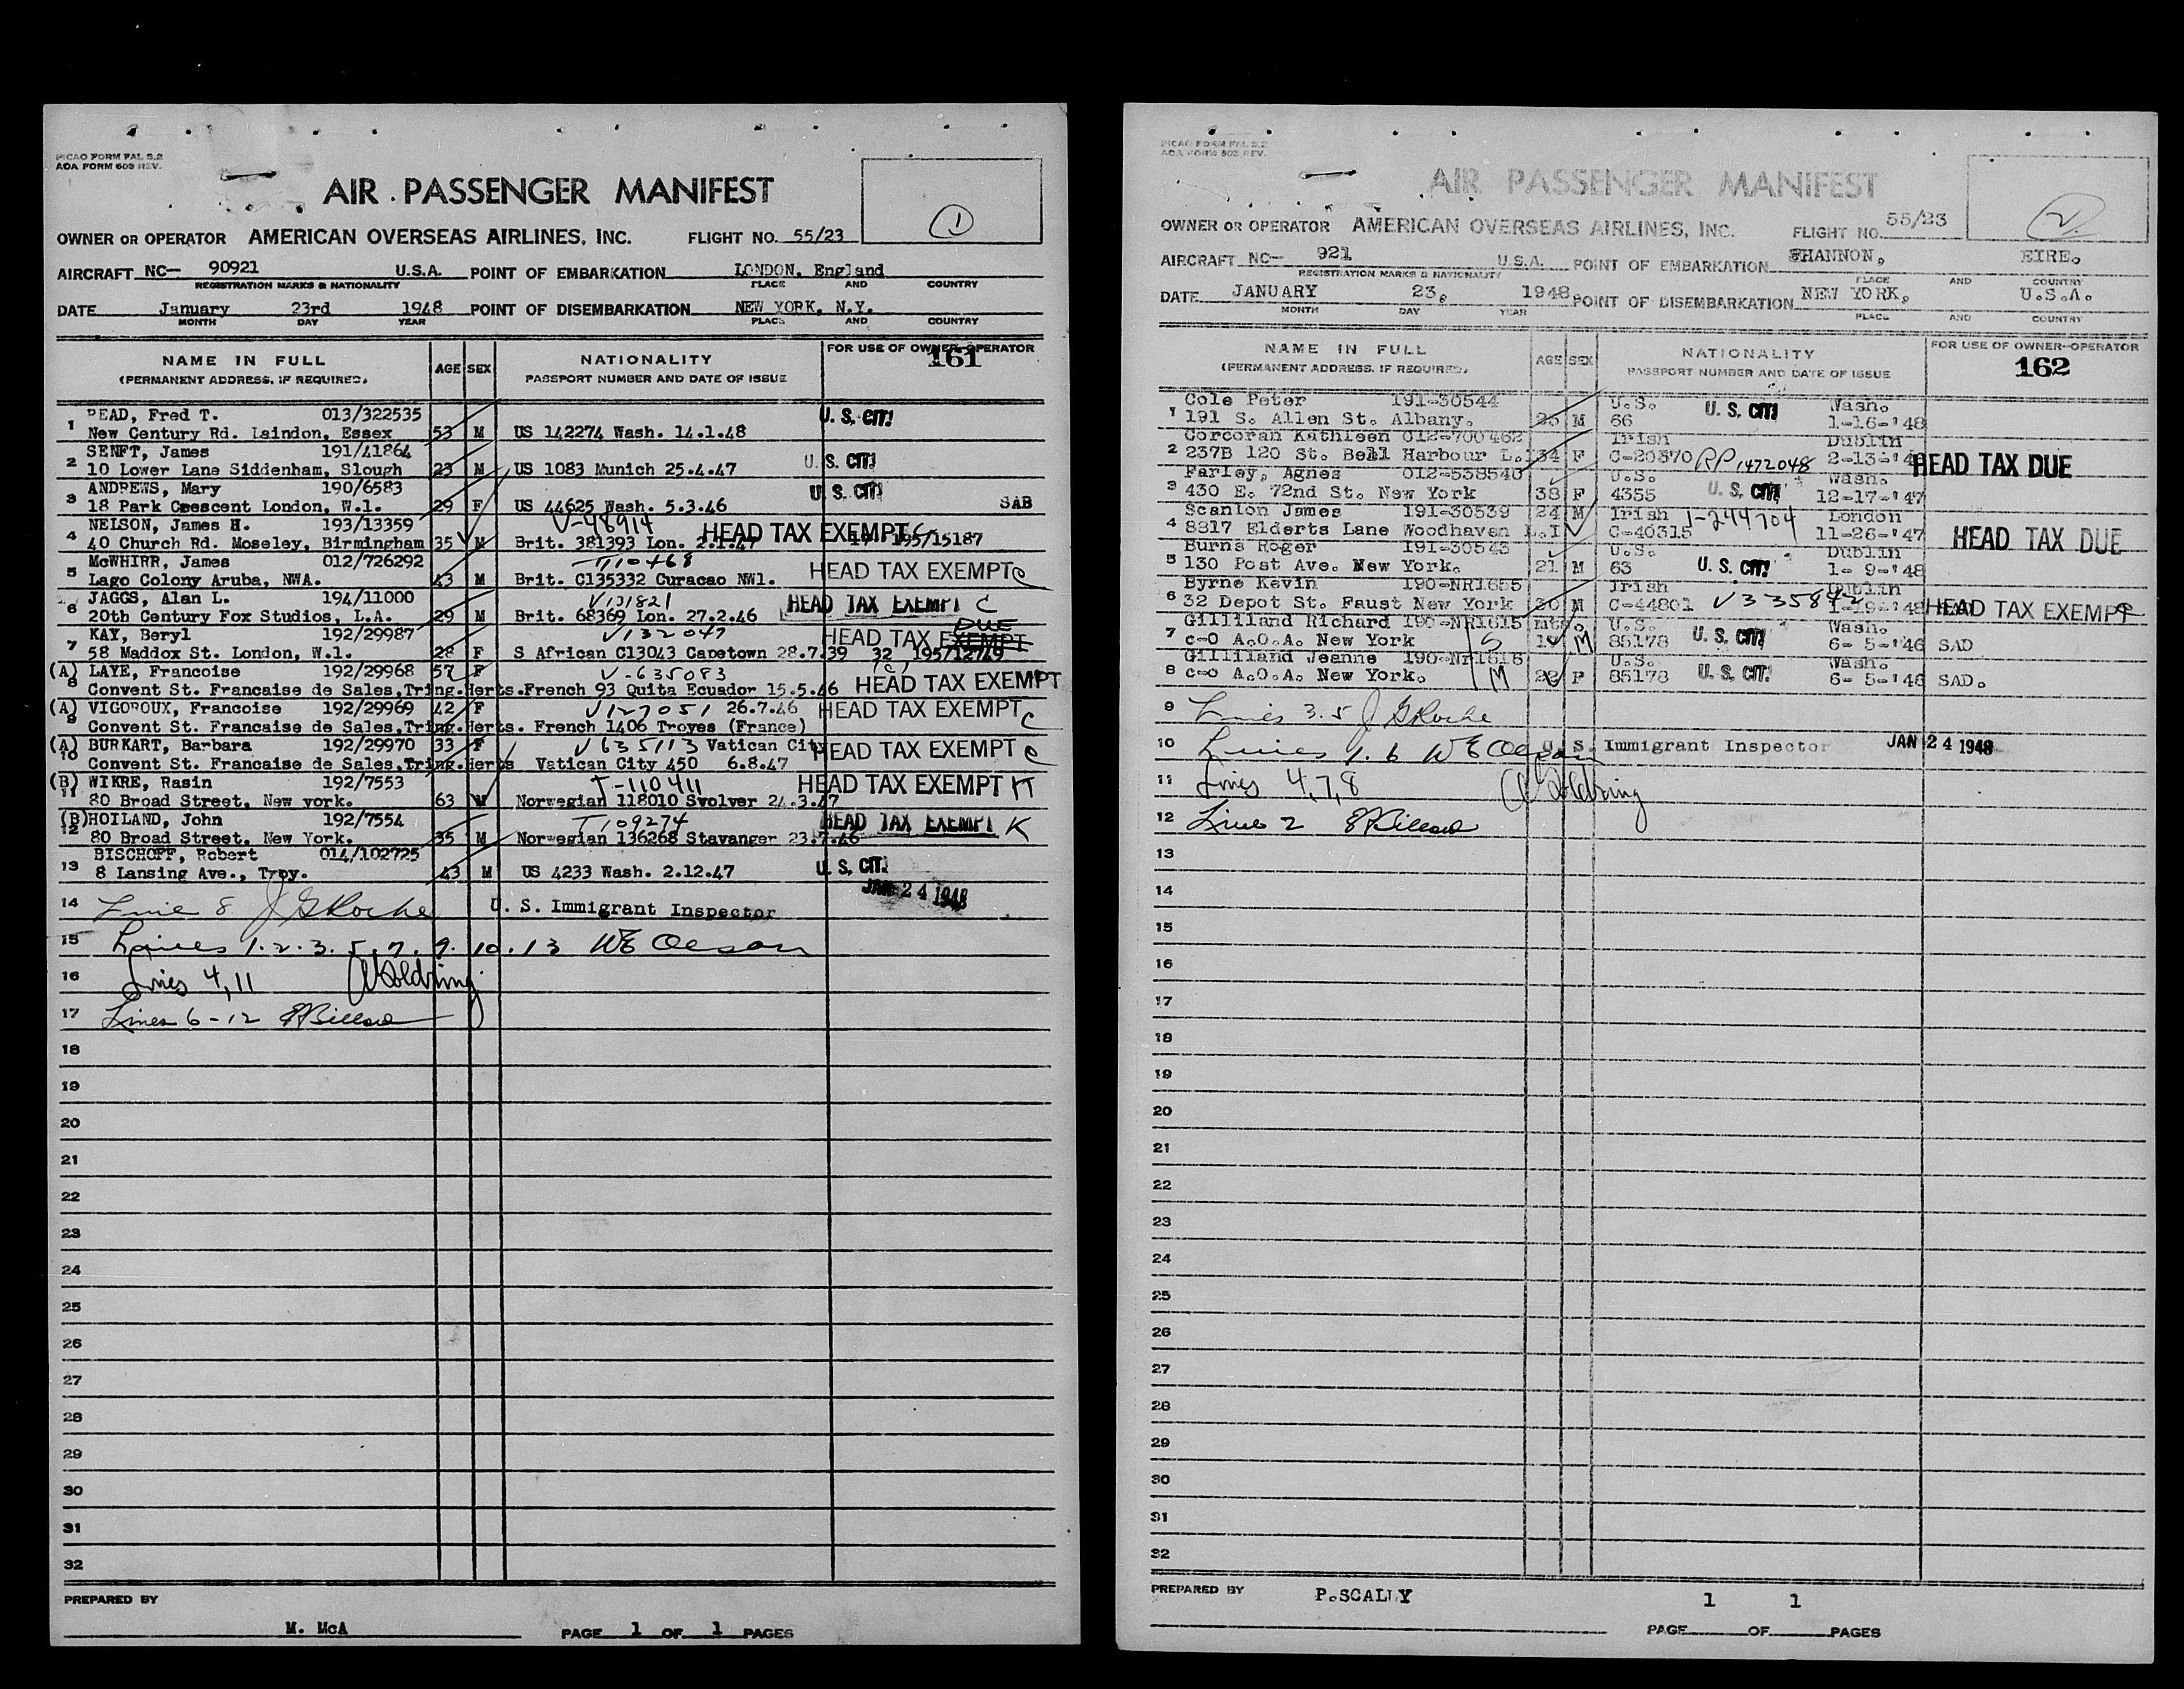 PICAO FORM FAL S.2
AOA FORM 603 REV.
AIR PASSENGER MANIFEST
1
OWNER OR OPERATOR AMERICAN OVERSEAS AIRLINES, INC. FLIGHT NO. 55/23
AIRCRAFT NC- 90921 U.S.A. POINT OF EMBARKATION LONDON, England
REGISTRATION MARKS & NATIONALITY PLACE AND COUNTRY
DATE January 23rd 1948 POINT OF DISEMBARKATION NEW YORK, N.Y.
MONTH DAY YEAR PLACE AND COUNTRY
NAME IN FULL AGE SEX NATIONALITY FOR USE OF OWNER-OPERATOR
(PERMANENT ADDRESS, IF REQUIRED) PASSPORT NUMBER AND DATE OF ISSUE 161
READ, Fred T. 013/322535 U. S. CIT!
1 New Century Rd. Laindon, Essex 53 M US 142274 Wash. 14.1.48
SENFT, James 191/41864
2 10 Lower Lane Siddenham, Slough 23 M US 1083 Munich 25.4.47 U. S. CIT!
ANDREWS, Mary 190/6583 U. S. CIT!
3 18 Park Crescent London, W.1. 29 F US 44625 Wash. 5.3.46 SAB
NELSON, James H. 193/13359 V-48914 HEAD TAX EXEMPT
4 40 Church Rd. Moseley, Birmingham 35 M Brit. 381393 Lon. 2.1.47 195/15187
McWHIRR, James 012/726292 T110468 HEAD TAX EXEMPT C
5 Lago Colony Aruba, NWA. 43 M Brit. C135332 Curacao NW1.
JAGGS, Alan L. 194/11000 V131821 HEAD TAX EXEMPT C
6 20th Century Fox Studios, L.A. 29 M Brit. 68369 Lon. 27.2.46
KAY, Beryl 192/29987 V132047 HEAD TAX EXEMPT DUE
7 58 Maddox St. London, W.1. 28 F S African C13043 Capetown 28.7.39 32 195/12749
(A) LAYE, Francoise 192/29968 57 F V-635083 HEAD TAX EXEMPT C
8 Convent St. Francaise de Sales,Tring.Herts.French 93 Quita Ecuador 15.5.46
(A) VIGOROUX, Francoise 192/29969 42 F V127051 26.7.46 HEAD TAX EXEMPT C
9 Convent St. Francaise de Sales,Tring.Herts. French 1406 Troyes (France)
(A) BURKART, Barbara 192/29970 33 F V635113 Vatican City HEAD TAX EXEMPT C
10 Convent St. Francaise de Sales,Tring.Herts Vatican City 450 6.8.47
(B) WIKRE, Rasin 192/7553 T-110411 HEAD TAX EXEMPT K
11 80 Broad Street, New york. 63 M Norwegian 118010 Svolver 24.3.47
(B) HOILAND, John 192/7554 T109274 HEAD TAX EXEMPT K
12 80 Broad Street, New York. 35 M Norwegian 136268 Stavanger 23.7.46
BISCHOFF, Robert 014/102725
13 8 Lansing Ave., Troy. 43 M US 4233 Wash. 2.12.47 U. S. CIT!
JAN 24 1948
14 Line 8 J G Roche U. S. Immigrant Inspector
15 Lines 1.2.3.5.7.9.10.13 WE Oleson
16 Lines 4,11 Goldring
17 Lines 6-12
18
19
20
21
22
23
24
25
26
27
28
29
30
31
32
PREPARED BY
M. McA PAGE 1 OF 1 PAGES
PICAO FORM FAL S.2
AOA FORM 603 REV.
AIR PASSENGER MANIFEST
2.
OWNER OR OPERATOR AMERICAN OVERSEAS AIRLINES, INC. FLIGHT NO. 55/23
AIRCRAFT NC- 921 U.S.A. POINT OF EMBARKATION SHANNON, EIRE.
REGISTRATION MARKS & NATIONALITY PLACE AND COUNTRY
DATE JANUARY 23, 1948 POINT OF DISEMBARKATION NEW YORK, U.S.A.
MONTH DAY YEAR PLACE AND COUNTRY
NAME IN FULL AGE SEX NATIONALITY FOR USE OF OWNER-OPERATOR
(PERMANENT ADDRESS, IF REQUIRED) PASSPORT NUMBER AND DATE OF ISSUE 162
Cole Peter 191-30544 U.S. U. S. CIT! Wash.
1 191 S. Allen St. Albany. M 66 1-16-'48
Corcoran Kathleen 012-700462 Irish Dublin
2 237B 120 St. Bell Harbour L.I 34 F C-20370 RP1472048 2-13-'4 HEAD TAX DUE
Farley, Agnes 012-538540 U.S. Wash.
3 430 E. 72nd St. New York 38 F 4355 U. S. CIT! 12-17-'47
Scanlon James 191-30539 24 M Irish J-244704 London
4 8817 Elderts Lane Woodhaven L.I C-40315 11-26-'47 HEAD TAX DUE
Burns Roger 191-30543 U.S. Dublin
5 130 Post Ave. New York. 21 M 63 U. S. CIT! 1-9-'48
Byrne Kevin 190-NR1655 Irish Dublin
6 32 Depot St. Faust New York 30 M C-44801 V335842 1-19-'48 HEAD TAX EXEMPT C
Gilliland Richard 190-NR1615 U.S. Wash.
7 c-o A.O.A. New York S M 85178 U. S. CIT! 6-5-'46 SAD
Gilliland Jeanne 190-Nr1616 U.S. Wash.
8 c-o A.O.A. New York. M F 85178 U. S. CIT! 6-5-'46 SAD.
9 Lines 3.5 J G Roche
10 Lines 1.6 WE Oleson U. S. Immigrant Inspector JAN 24 1948
11 Lines 4,7,8 Goldring
12 Line 2
13
14
15
16
17
18
19
20
21
22
23
24
25
26
27
28
29
30
31
32
PREPARED BY P.SCALLY 1 1
PAGE OF PAGES